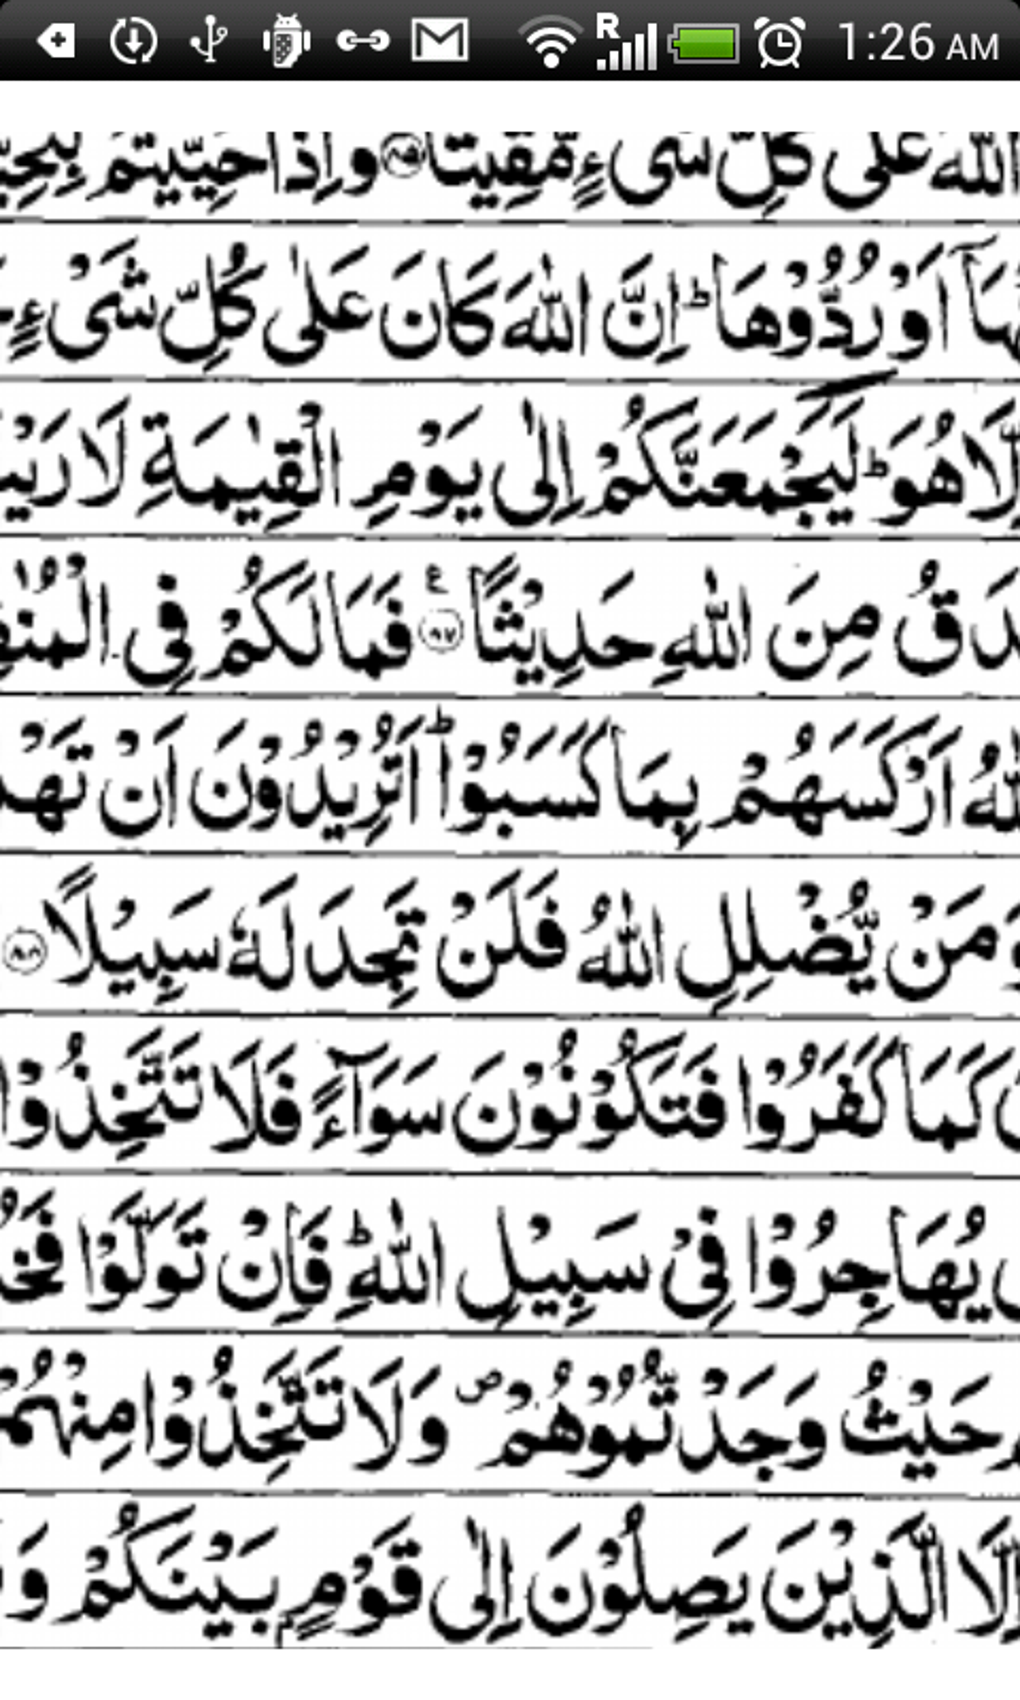 1:26 AM
اللهَ عَلٰى كُلِّ شَىْءٍ مُّقِيْتًا ﴿۸۵﴾ وَاِذَا حُيِّيْتُمْ
اَوْ رُدُّوْهَا ؕ اِنَّ اللّٰهَ كَانَ عَلٰى كُلِّ شَىْءٍ
اِلَّا هُوَ ؕ لَيَجْمَعَنَّكُمْ اِلٰى يَوْمِ الْقِيٰمَةِ لَا
مِنَ اللّٰهِ حَدِيْثًا ﴿۸۷﴾ ع فَمَا لَكُمْ فِى
اَرْكَسَهُمْ بِمَا كَسَبُوْا ؕ اَتُرِيْدُوْنَ اَنْ
وَمَنْ يُّضْلِلِ اللّٰهُ فَلَنْ تَجِدَ لَهٗ سَبِيْلًا ﴿۸۸﴾
كَمَا كَفَرُوْا فَتَكُوْنُوْنَ سَوَآءً فَلَا تَتَّخِذُوْا
يُهَاجِرُوْا فِىْ سَبِيْلِ اللّٰهِ ؕ فَاِنْ تَوَلَّوْا
حَيْثُ وَجَدْتُّمُوْهُمْ ۪ وَلَا تَتَّخِذُوْا مِنْهُمْ
اِلَّا الَّذِيْنَ يَصِلُوْنَ اِلٰى قَوْمٍۭ بَيْنَكُمْ وَ